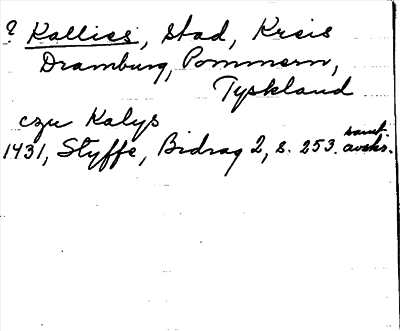 ? Kalliss, stad, Kreis
Dramburg, Pommern,
Tyskland
czu Kalys
1431, Styffe, Bidrag 2, s. 253. samt. avskr.